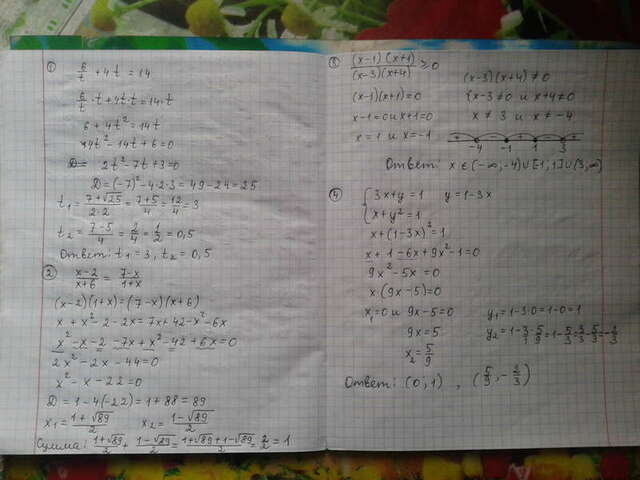 ①
6/t + 4t = 14
6/t · t + 4t · t = 14 · t
6 + 4t² = 14t
4t² - 14t + 6 = 0
D= 2t² - 7t + 3 = 0
D = (-7)² - 4·2·3 = 49 - 24 = 25
t₁ = (7+√25)/(2·2) = (7+5)/4 = 12/4 = 3
t₂ = (7-5)/4 = 2/4 = 1/2 = 0,5
Ответ: t₁ = 3, t₂ = 0,5
②
(x-2)/(x+6) = (7-x)/(1+x)
(x-2)(1+x) = (7-x)(x+6)
x + x² - 2 - 2x = 7x + 42 - x² - 6x
x² - x - 2 - 7x + x² - 42 + 6x = 0
2x² - 2x - 44 = 0
x² - x - 22 = 0
D = 1 - 4(-22) = 1 + 88 = 89
x₁ = (1+√89)/2 x₂ = (1-√89)/2
Сумма: (1+√89)/2 + (1-√89)/2 = (1+√89+1-√89)/2 = 2/2 = 1
③
(x-1)(x+1)/(x-3)(x+4) ≥ 0
(x-1)(x+1) = 0
x-1=0 и x+1=0
x = 1 и x = -1
(x-3)(x+4) ≠ 0
{x-3 ≠ 0 и x+4 ≠ 0
x ≠ 3 и x ≠ -4
+ - + - +
-4 -1 1 3
Ответ: x ∈ (-∞, -4) ∪ [-1, 1] ∪ (3, ∞)
④
{3x+y = 1 y = 1-3x
x+y² = 1
x + (1-3x)² = 1
x + 1 - 6x + 9x² - 1 = 0
9x² - 5x = 0
x·(9x-5) = 0
x₁ = 0 и 9x-5 = 0
9x = 5
x₂ = 5/9
y₁ = 1-3·0 = 1-0 = 1
y₂ = 1 - 3/1 · 5/9 = 1 - 5/3 = 3/3 - 5/3 = -2/3
Ответ: (0, 1), (5/9, -2/3)